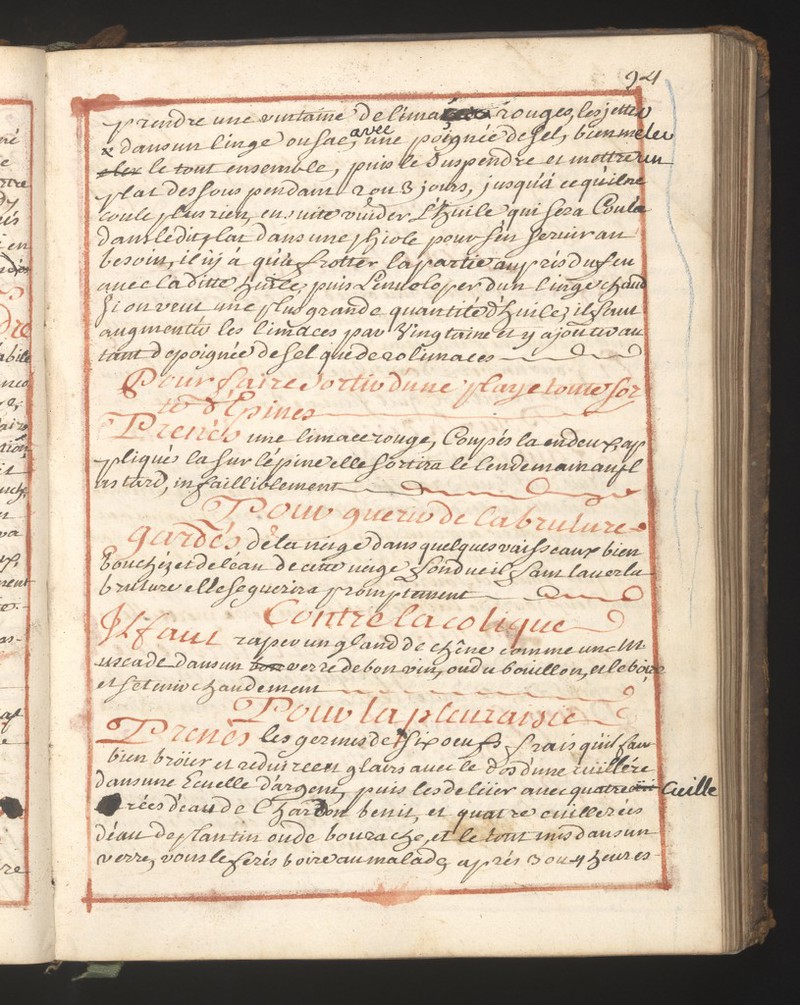 94
prendre une vintaine de lima rouges, les jetter
x dans un linge ou sac, avec une poignée de sel, bien meler
le tout ensemble, puis le Suspendre et mettre un
plat dessous pendant 2 ou 3 jours, jusqu'á ce qu'il ne
coule plus rien, ensuite vuider L'huile qui sera Coulé
dans le dit plat dans une phiole pour s'en Servir au
besoin, il n'y á qu'a frotter la partie auprés du feu
avec la ditte huile, puis L'enveloper d'un linge chaud
Si on veut une plus grande quantité d'huile, il faut
augmenter les limaces par Vingtaine et y ajouter au
tant de poignée de sel que de 20 limaces
Pour faire Sortir d'une playe toute sor
te d'Epines
Prenés une limace rouge, Coupés la en deux, ap
pliqués la sur l'épine elle sortira le lendemain au pl
us tard, infailliblement
Pour guerir de la brulure
gardés, de la neige dans quelques vaisseaux bien
bouchez et de l'eau de cette neige fondue il faut laver la
brulure elle se guerira promptement
Contre la colique
Il faut raper un gland de chêne comme une M
uscade dans un verre de bon vin, ou du bouillon, et le boire
et se tenir chaudement
Pour la pleuraisie
Prenés les germes de six oeufs frais qu'il fau
bien bröüer et reduire en glaire avec le dos d'une cuillére
dans une Ecuelle d'argent, puis les deläier avec quatre Cüeille
rées d'eau de Chardon benit, et quatre cuillerées
d'éau de plantin ou de bourache, et le tout mis dans un
verre, vous le ferés boire au malade, aprés 3 ou 4 heures